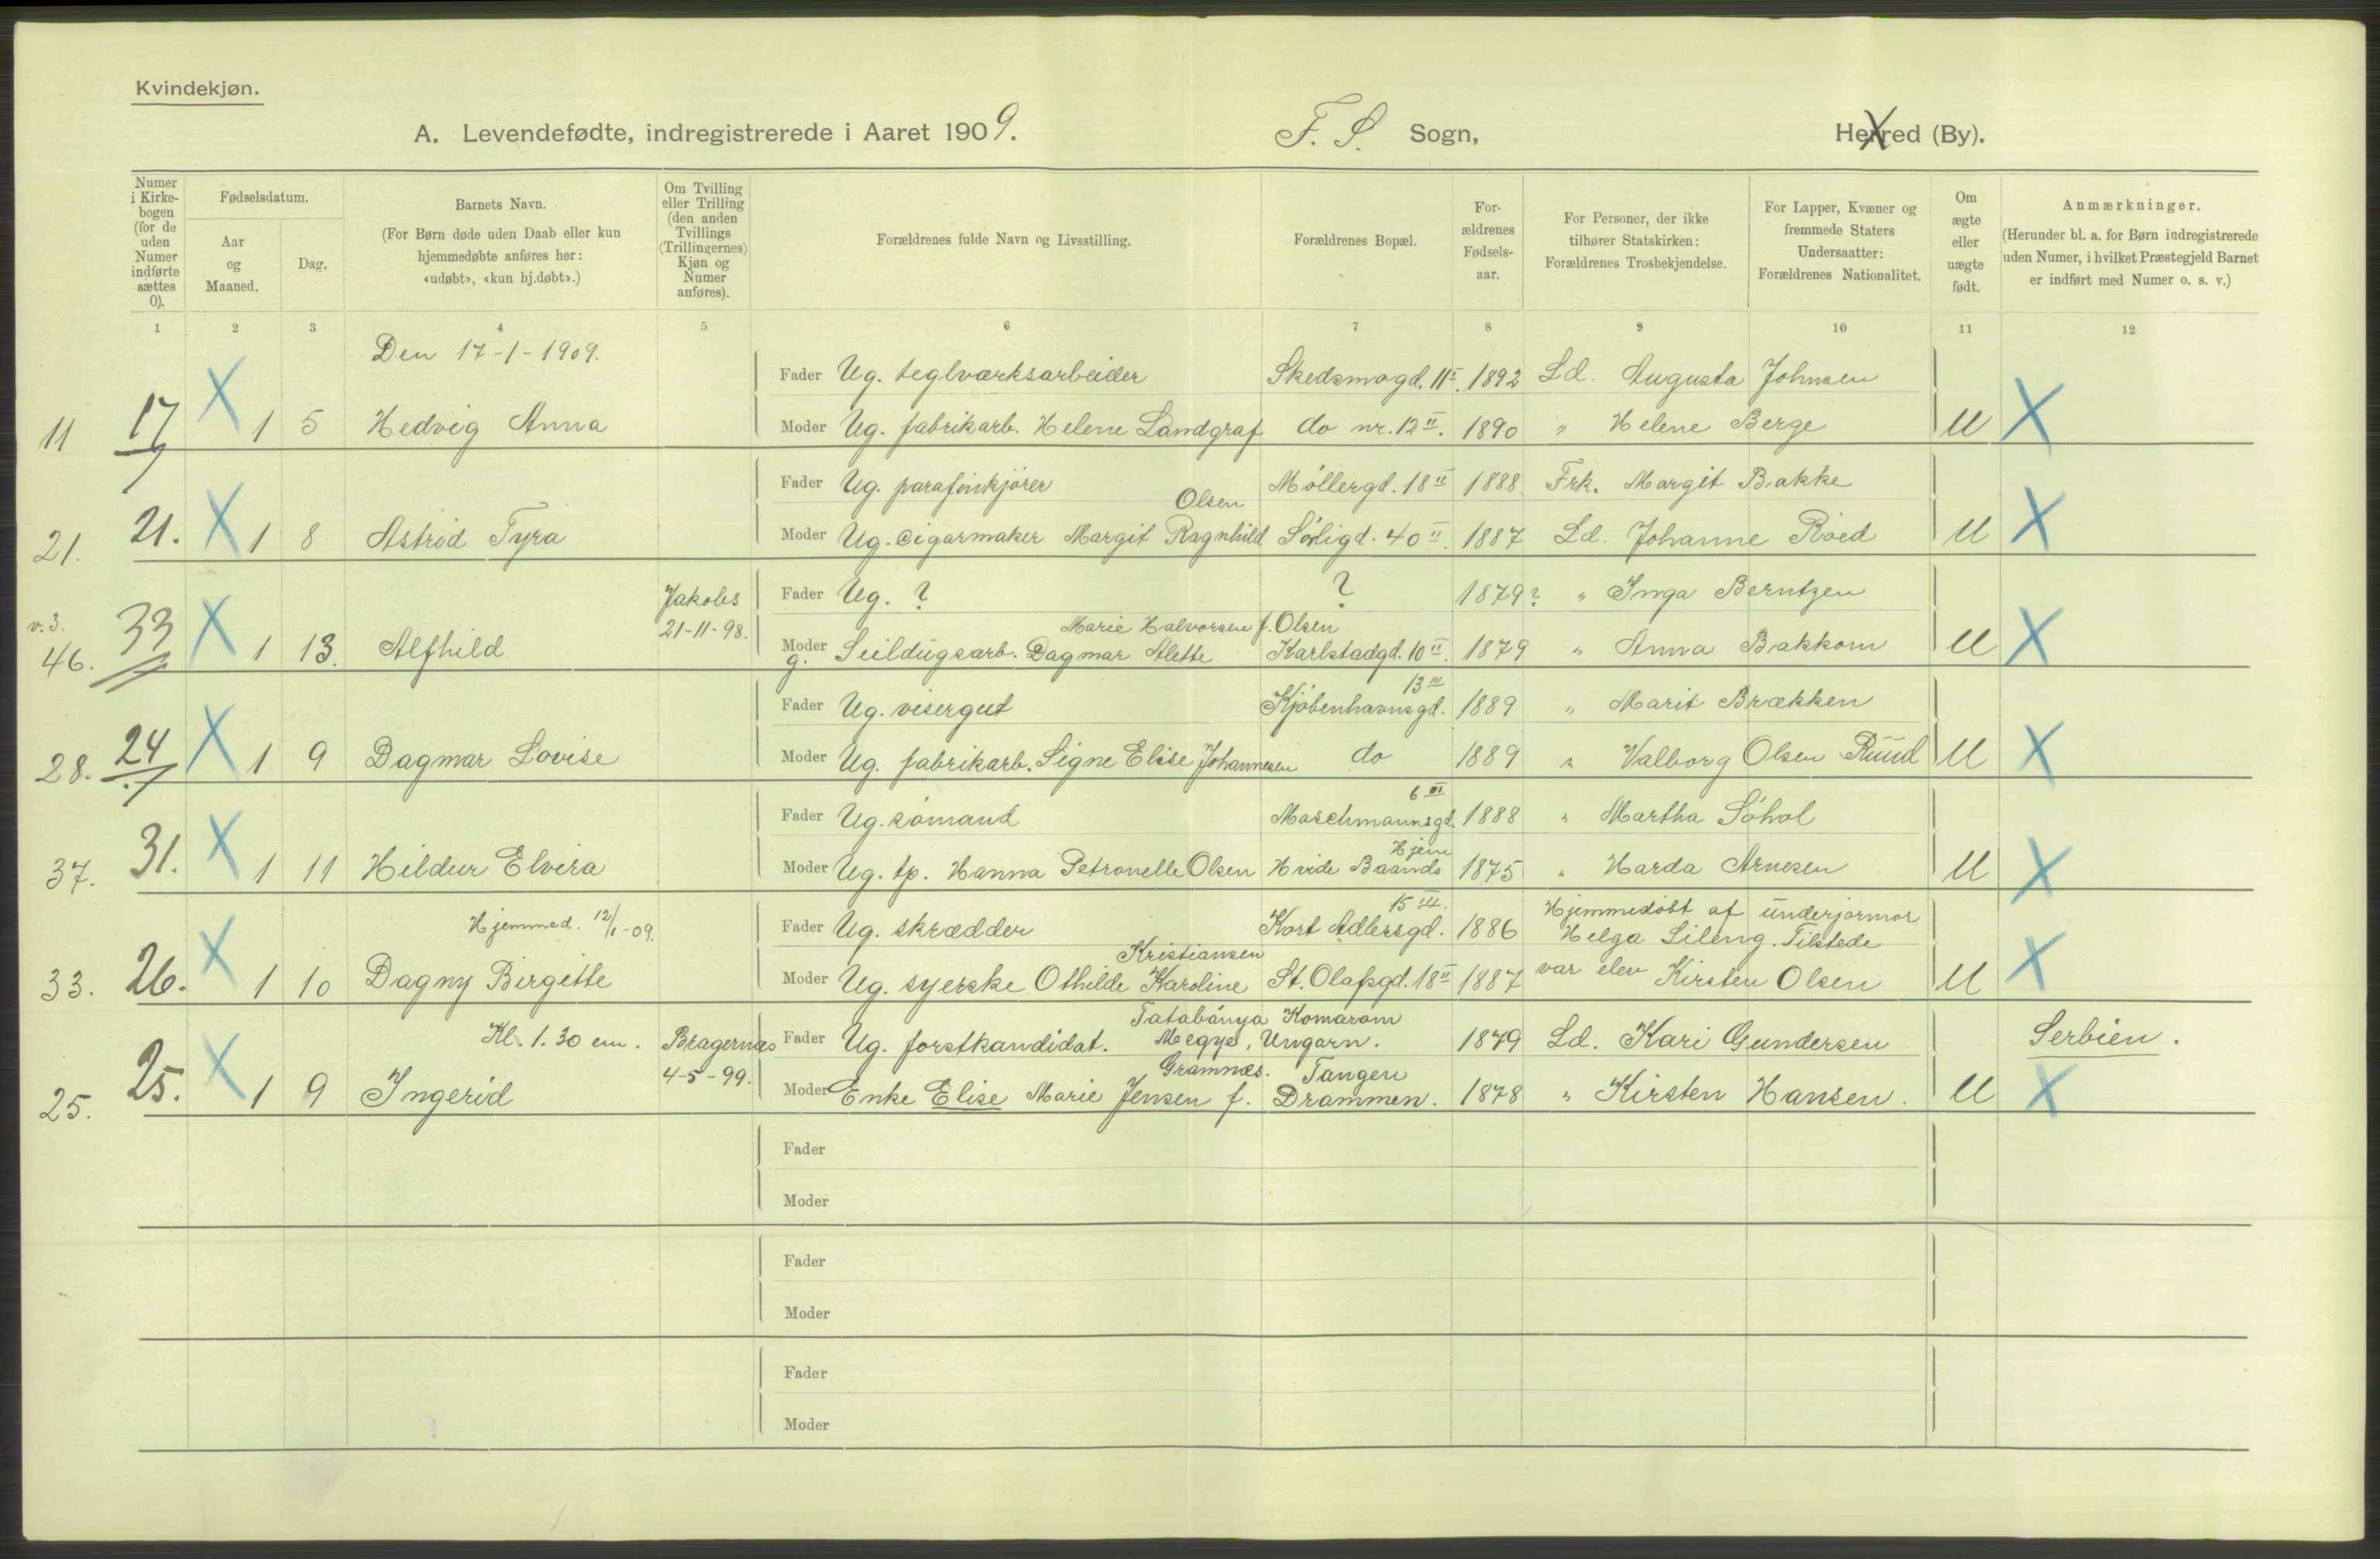 Kvindekjøn.
A. Levendefødte, indregistrerede i Aaret 1909. F. S. Sogn, Herred (By).
Numer i Kirkebogen (for de uden Numer indførte sættes 0).
Fødselsdatum.
Aar og Maaned.
Dag.
Barnets Navn.
(For Børn døde uden Daab eller kun hjemmedøbte anføres her: «udøbt», «kun hj.døbt».)
Om Tvilling eller Trilling (den anden Tvillings (Trillingernes) Kjøn og Numer anføres).
Forældrenes fulde Navn og Livsstilling.
Forældrenes Bopæl.
Forældrenes Fødselsaar.
For Personer, der ikke tilhører Statskirken: Forældrenes Trosbekjendelse.
For Lapper, Kvæner og fremmede Staters Undersaatter: Forældrenes Nationalitet.
Om ægte eller uægte født.
Anmærkninger.
(Herunder bl. a. for Børn indregistrerede uden Numer, i hvilket Præstegjeld Barnet er indført med Numer o. s. v.)
1 2 3 4 5 6 7 8 9 10 11 12
Den 17-1-1909.
Fader Ug. teglværksarbeider Skedsmogd. 11 I. 1892 Ld. Augusta Johnsen
11 17 X 1 5 Hedvig Anna Moder Ug. fabrikarb. Helene Landgraf do nr. 12 II. 1890 " Helene Berge U X
Fader Ug. parafinkjører Møllergd. 18 II 1888 Frk. Margit Bakke
Olsen
21. 21. X 1 8 Astrid Tyra Moder Ug. cigarmaker Margit Ragnhild Sørligd. 40 II. 1887 Ld. Johanne Roed U X
Jakobs Fader Ug. ? ? 1879? " Inga Berntzen
v. 3. 21-11-98. Marie Halvorsen f. Olsen
46. 33 X 1 13. Alfhild Moder g. Seildugsarb. Dagmar Alette Karlstadgd. 10 II. 1879 " Anna Bakkom U X
13 III
Fader Ug. visergut Kjøbenhavnsgd. 1889 " Marit Brækken
28. 24 X 1 9 Dagmar Lovise Moder Ug. fabrikarb. Signe Elise Johannesen do 1889 " Valborg Olsen Ruud U X
6 III
Fader Ug. sømand Maschmannsgd. 1888 " Martha Søhol
Hjem
37. 31. X 1 11 Hildur Elvira Moder Ug. tp. Hanna Petronelle Olsen Hvide Baands 1875 " Harda Arnesen U X
15 III.
Hjemmed. 12/1-09. Fader Ug. skrædder Kort Adlersgd. 1886 Hjemmedøbt af underjormor
Kristiansen Helga Lileng. Tilstede
33. 26. X 1 10 Dagny Birgitte Moder Ug. syerske Othilde Karoline St. Olafsgd. 18 II 1887 var elev Kirsten Olsen U X
Tatabánya Komarom
Kl. 1.30 em. Bragernæs Fader Ug. forstkandidat. Megye, Ungarn. 1879 Ld. Kari Gundersen Serbien.
4-5-99. Gramnæs. Tangen
25. 25. X 1 9 Ingerid Moder Enke Elise Marie Jensen f. Drammen. 1878 " Kirsten Hansen. U X
Fader
Moder
Fader
Moder
Fader
Moder